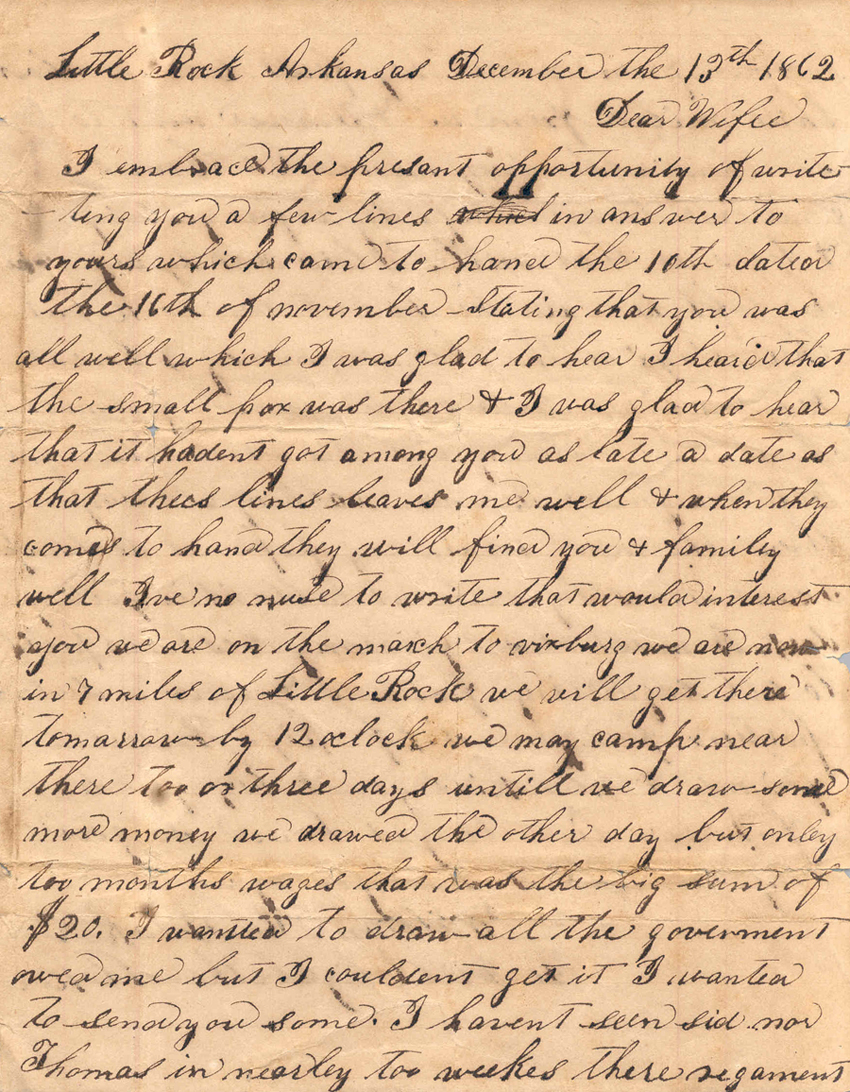 Little Rock Arkansas December the 13th 1862
Dear Wife
I embrace the presant opportunity of write
ting you a few lines which in answer to
yours which came to hand the 10th dated
the 16th of november stating that you was
all well which I was glad to hear I heard that
the small pox was there & I was glad to hear
that it hadent got among you as late a date as
that thees lines leaves me well & when they
comes to hand they will find you & family
well I've no nuse to write that would interest
you we are on the march to vixburg we are now
in 7 miles of Little Rock we will get there
tomarrow by 12 oclock we may camp near
there too or three days untill we draw some
more money we drawed the other day but onley
too months wages that was the big sum of
$20. I wanted to draw all the goverment
owed me but I couldent get it I wanted
to send you some. I havent seen sid nor
Thomas in nearley too weekes there regament